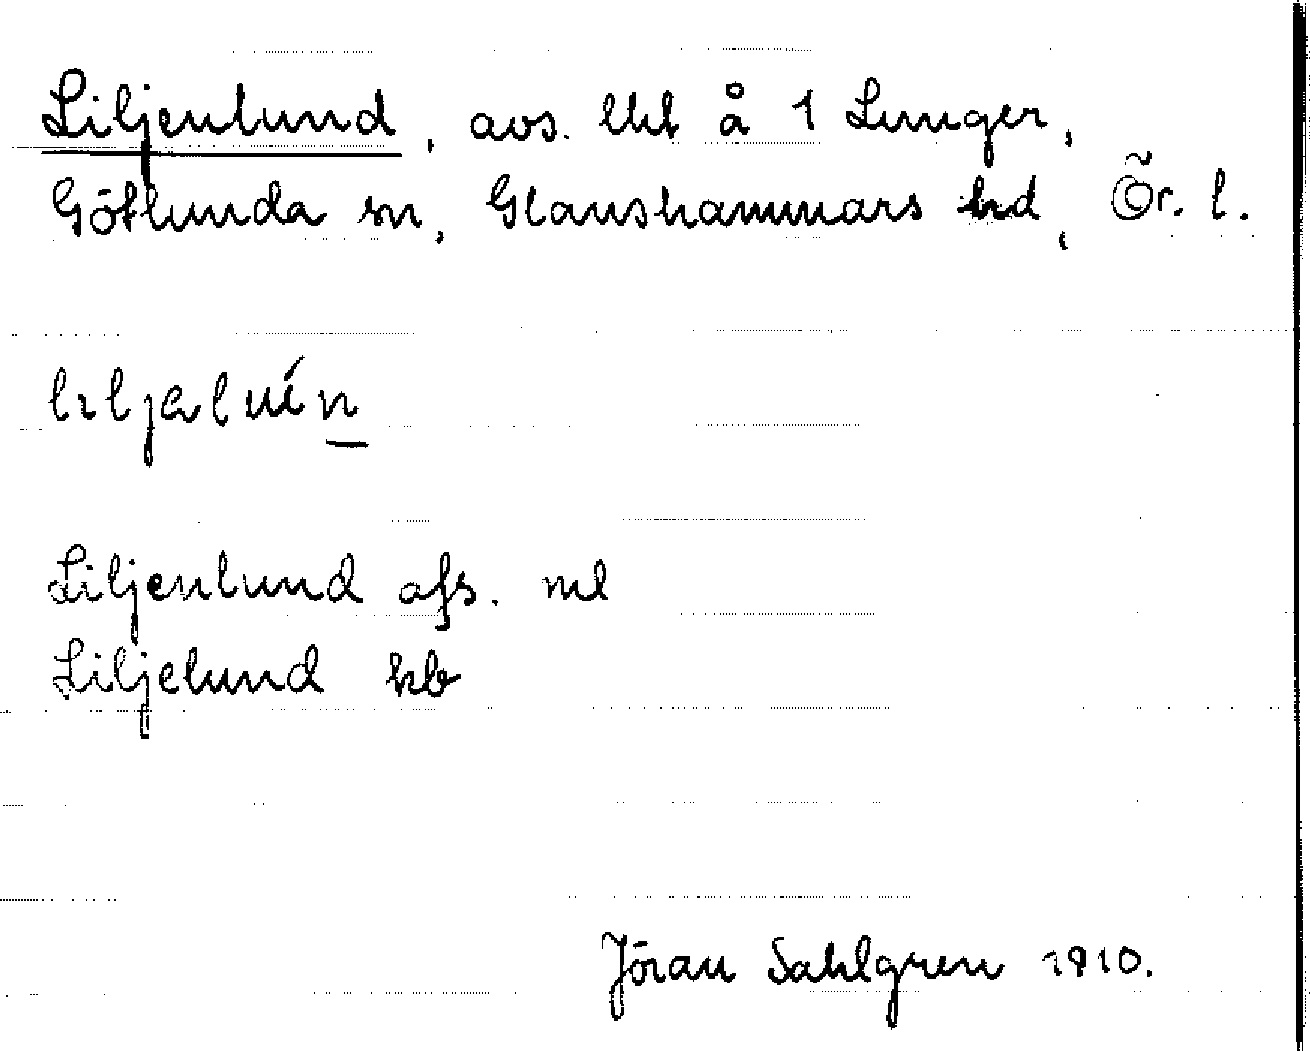 Liljenlund, avs. lht å 1 Lunger,
Götlunda sn, Glanshammars hd, Ör. l.
lɩljalún
Liljenlund afs. ml
Liljelund kb
Jöran Sahlgren 1910.